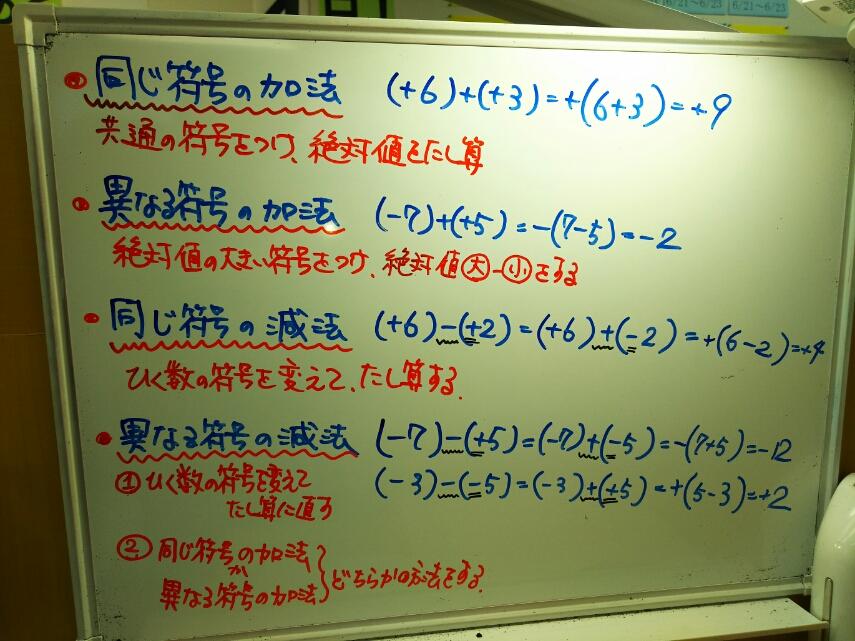 6/21～6/23 6/21～6/23
同じ符号の加法 (+6)+(+3)=+(6+3)=+9
共通の符号をつけ、絶対値をたし算
異なる符号の加法 (-7)+(+5)=-(7-5)=-2
絶対値の大きい符号をつけ、絶対値大-小をする
同じ符号の減法 (+6)-(+2)=(+6)+(-2)=+(6-2)=+4
ひく数の符号を変えて、たし算する.
異なる符号の減法 (-7)-(+5)=(-7)+(-5)=-(7+5)=-12
(-3)-(-5)=(-3)+(+5)=+(5-3)=+2
①ひく数の符号を変えて
たし算に直す
②同じ符号の加法
か
異なる符号の加法
どちらかの方法をする.